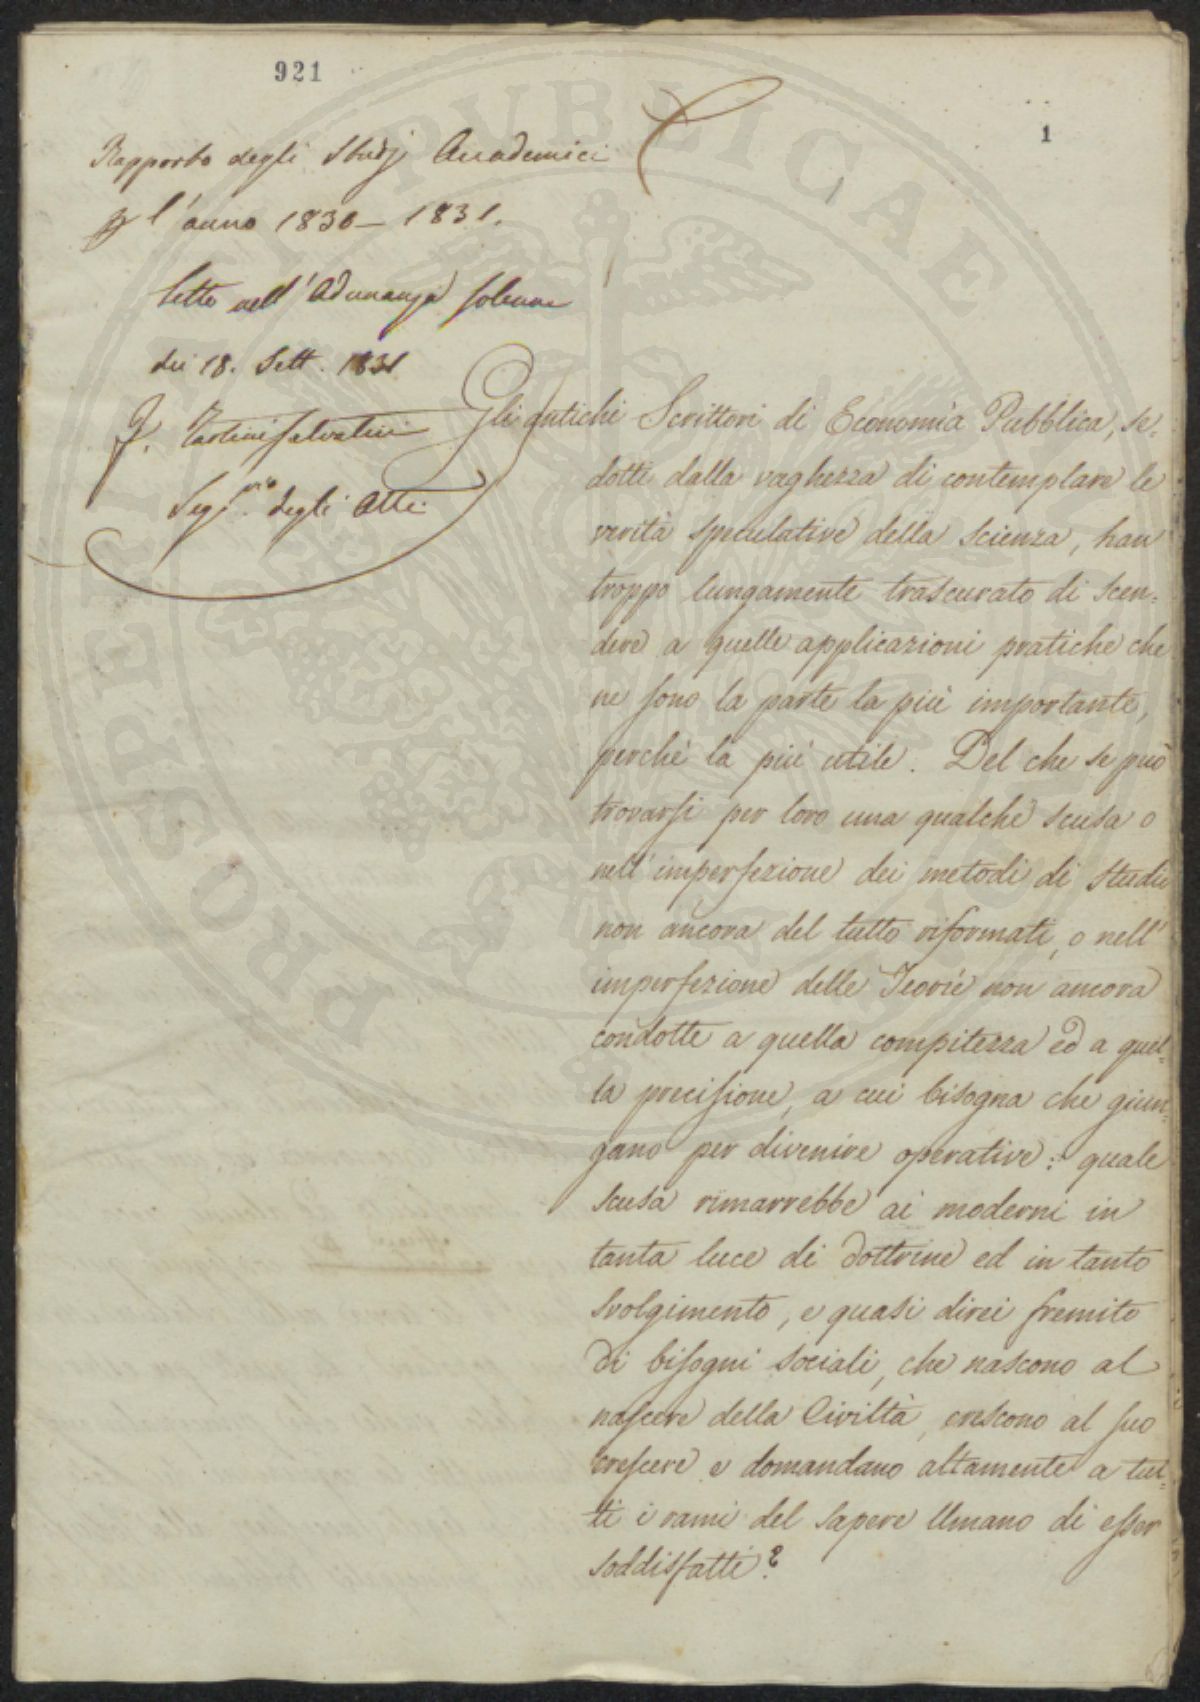 921
1
Rapporto degli Studj Accademici
p l'anno 1830–1831.
letto nell'Adunanza solenne
dei 18. Sett. 1831
F. Tartini Salvatici
Seg.rio degli Atti
Gli antichi Scrittori di Economia Pubblica, se=
dotti dalla vaghezza di contemplare le
verità speculative della scienza, han
troppo lungamente trascurato di scen=
dere a quelle applicazioni pratiche che
ne sono la parte la più importante,
perchè la più utile. Del che se può
trovarsi per loro una qualche scusa o
nell'imperfezione dei metodi di studio
non ancora del tutto riformati, o nell'
imperfezione delle Teorie non ancora
condotte a quella compitezza ed a quel=
la precisione, a cui bisogna che giun=
gano per divenire operative: quale
scusa rimarrebbe ai moderni in
tanta luce di dottrine ed in tanto
svolgimento, e quasi direi fremito
di bisogni sociali, che nascono al
nascere della Civiltà, crescono al suo
crescere e domandano altamente a tut=
ti i rami del sapere Umano di esser
soddisfatti?
PROSPERITATI PUBLICAE